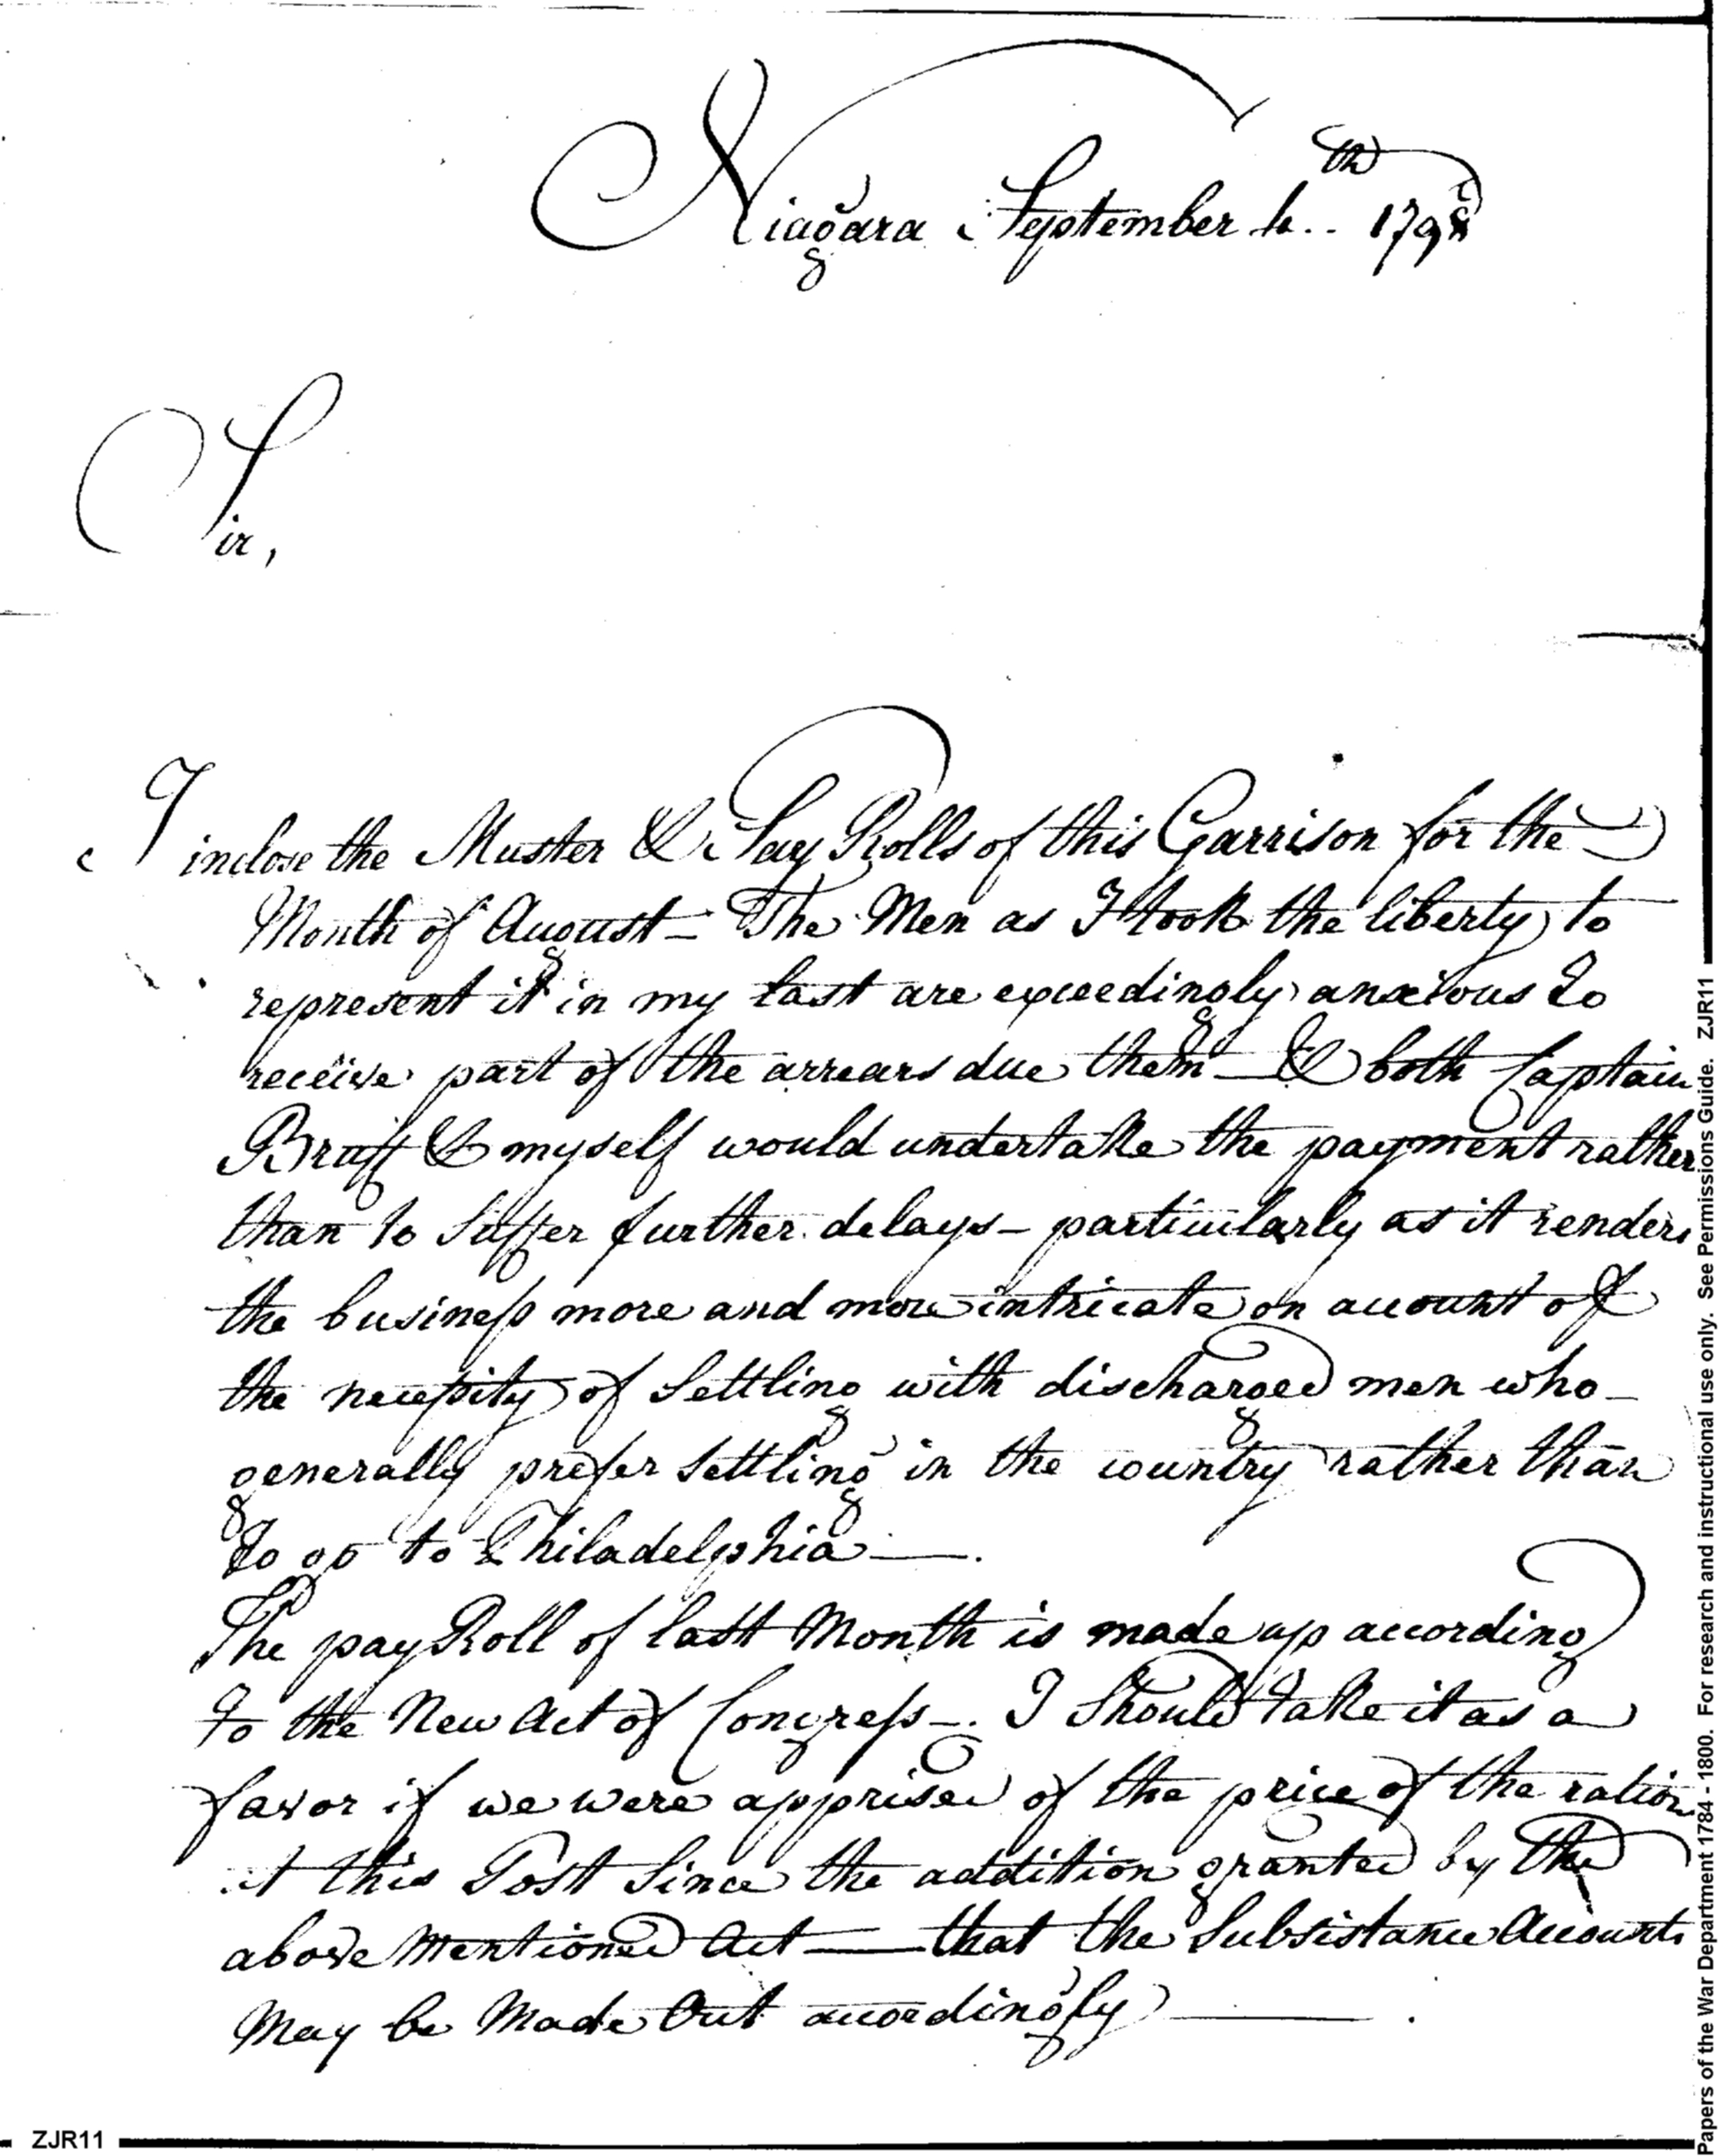 Niagara September 4..th 1798
Sir,
I inclose the Muster & Pay Rolls of this Garrison for the
Month of August – The Men as I took the liberty to
represent it in my last are exceedingly anxious to
receive part of the arrears due them – & both Captain
Bruff & myself would undertake the payment rather
than to suffer further delays – particularly as it renders
the business more and more intricate on account of
the necessity of settling with discharged men who –
generally prefer settling in the country rather than
to go to Philadelphia —.
The pay Roll of last Month is made up according
to the New Act of Congress –. I Should take it as a
favor if we were apprised of the price of the ration
at this Post Since the addition granted by the
above mentioned Act — that the Subsistance Accounts
May be Made Out accordingly — .
ZJR11
Papers of the War Department 1784 - 1800. For research and instructional use only. See Permissions Guide. ZJR11